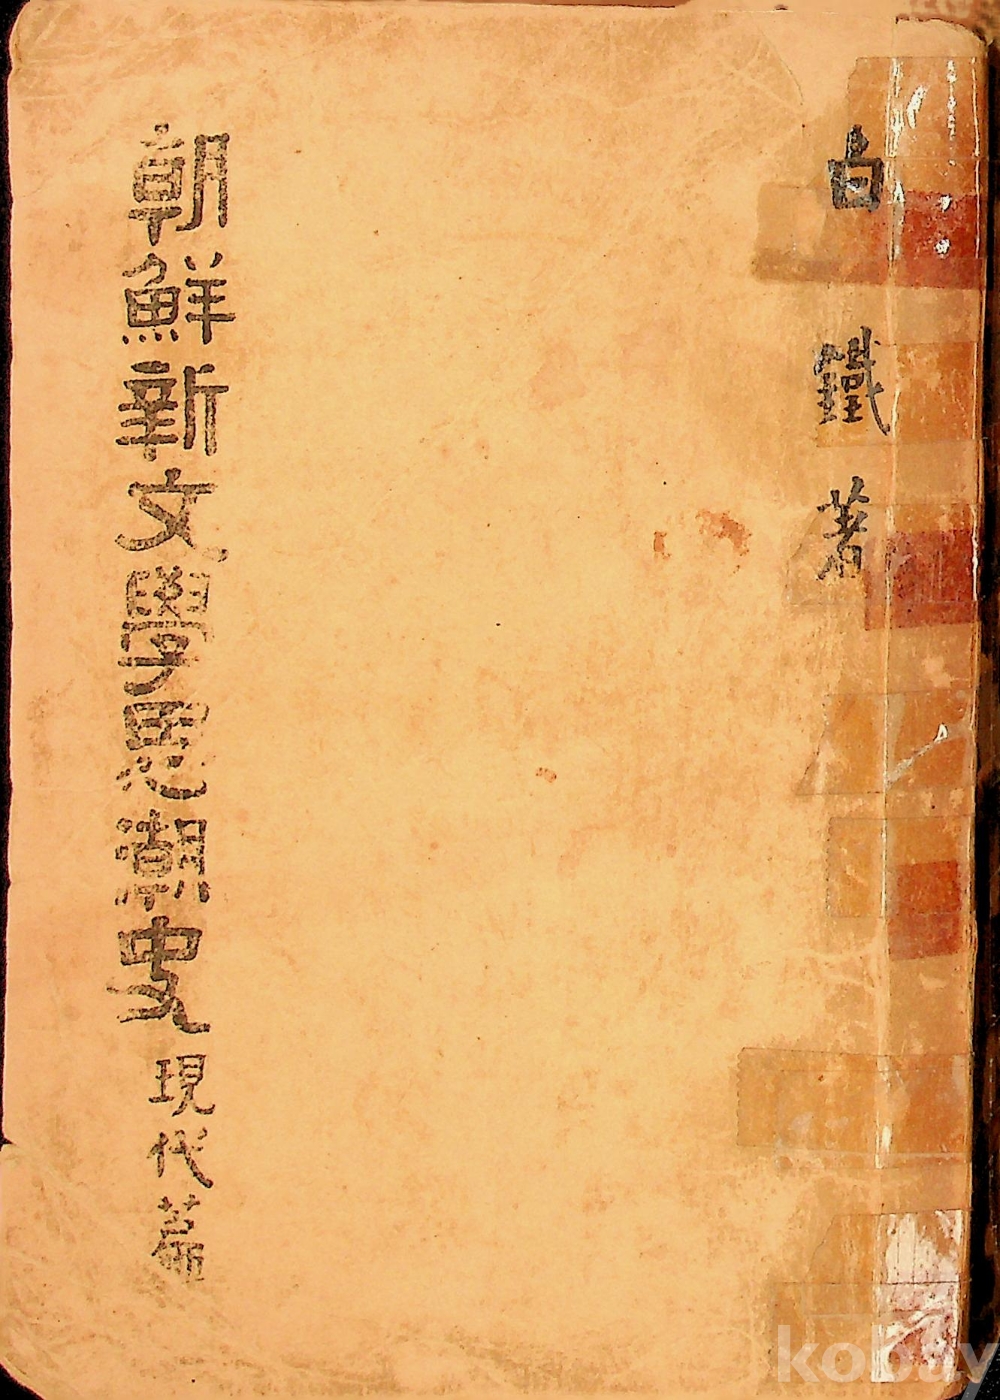 白鐵著
朝鮮新文學思潮史 現代篇
kobay